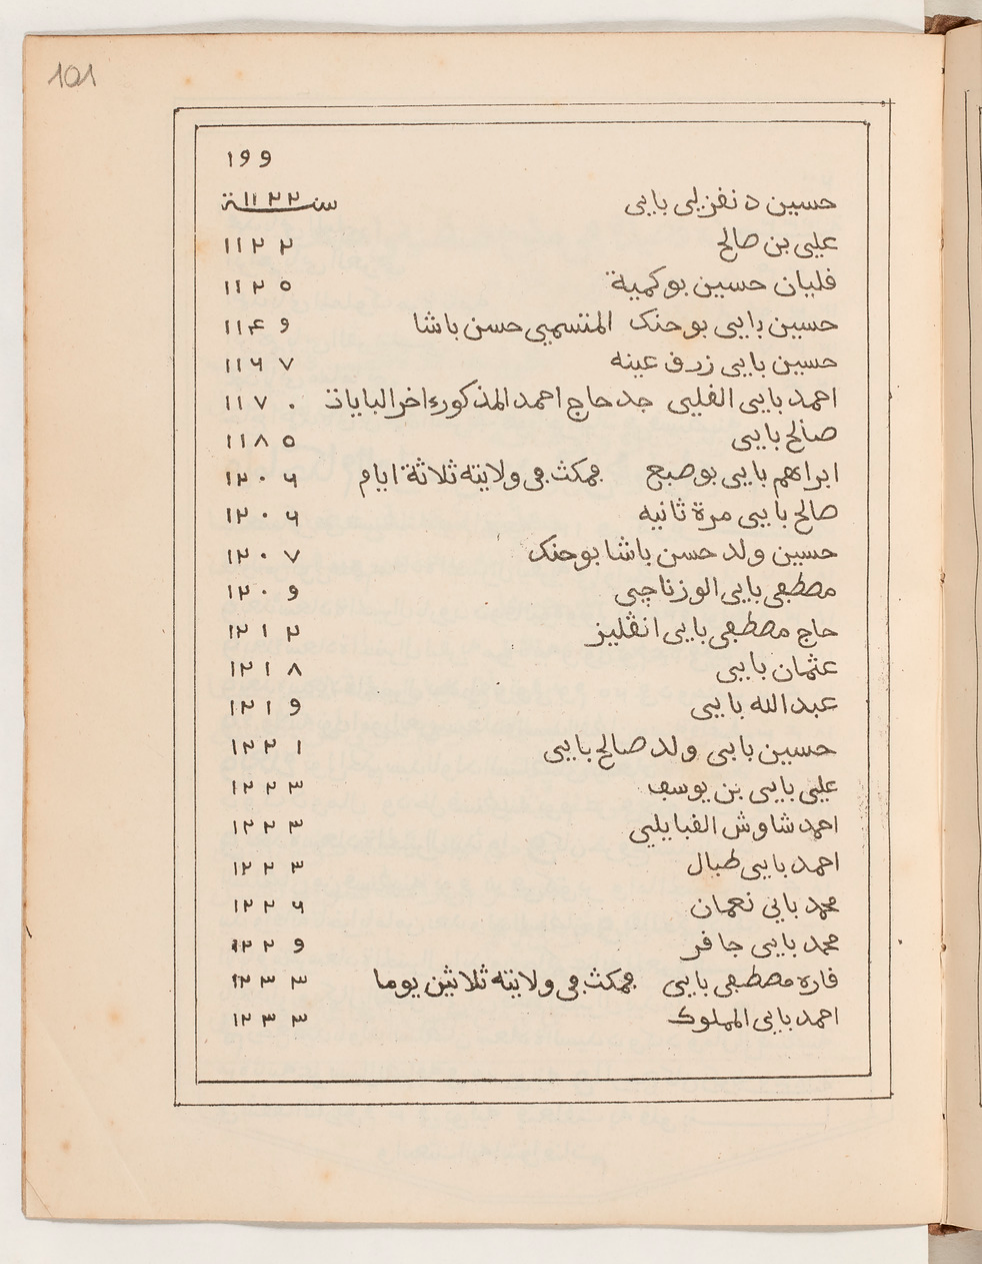 101
١٩٩
حسين دنفزلي بايي سنة ١١٢٢
علي بن صالح ١١٢٢
فليان حسين بوكمية ١١٢٥
حسين بايي بوحنك المتسمي حسن باشا ١١٤٩
حسين بايي زرف عينه ١١٦٧
احمد بايي الفلي جد حاج احمد المذكور اخر البايات ١١٧٠
صالح بايي ١١٨٥
ابراهم بايي بوصبع فمكث في ولايته ثلاثة ايام ١٢٠٦
صالح بايي مرة ثانيه ١٢٠٦
حسين ولد حسن باشا بوحنك ١٢٠٧
مصطفى بايي الوزناجي ١٢٠٩
حاج مصطفى بايي انڤليز ١٢١٢
عثمان بايي ١٢١٨
عبد الله بايي ١٢١٩
حسين بايي ولد صالح بايي ١٢٢١
علي بايي بن يوسف ١٢٢٣
احمد شاوش الفبايلي ١٢٢٣
احمد بايي طبال ١٢٢٣
محمد بايي نعمان ١٢٢٦
محمد بايي جافر ١٢٢٩
فاره مصطفى بايي فمكث في ولايته ثلاثين يوما ١٢٣٣
احمد بايي المملوك ١٢٣٣